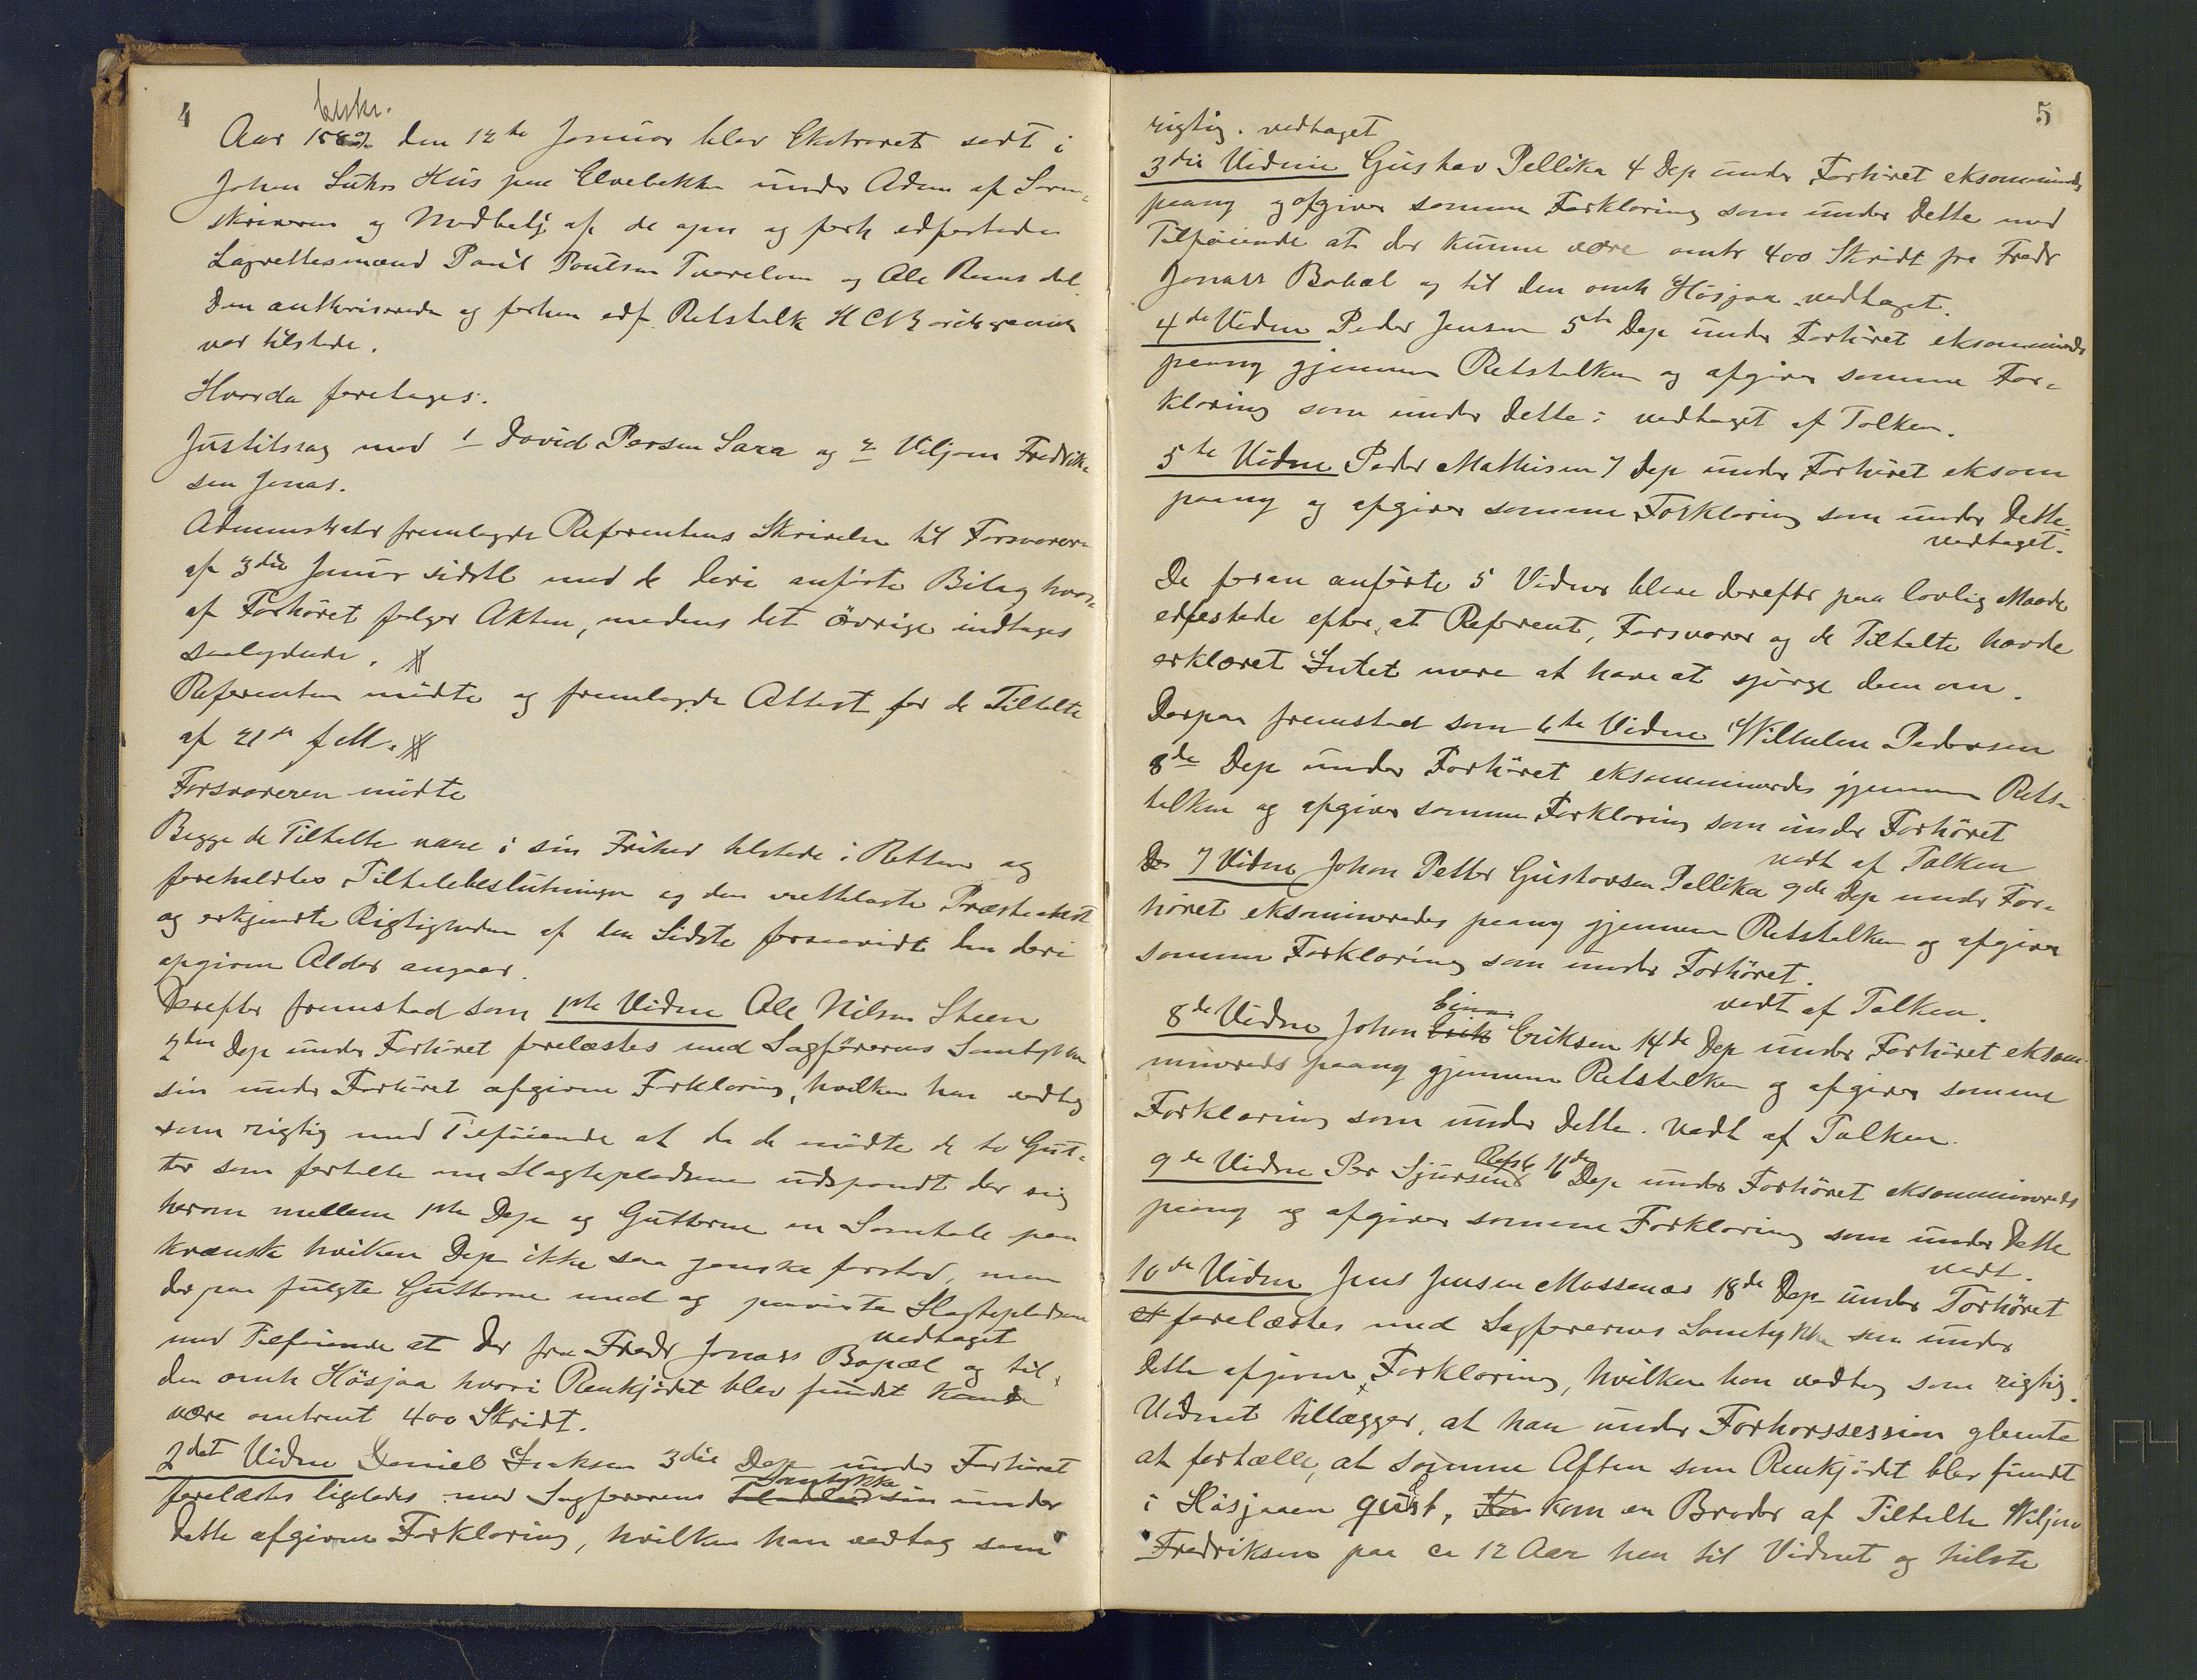 4
beskr.
Aar 1889 den 12te Januar blev Ekstraret sadt i
Johan Hus paa Elvebakken under Adm af Soren-
skriveren og Medhelj af de opn og forh edfæstede
Lagrettesmænd Paul Poulsen Tverelven og Ole
Den authoriserede og forhen edf. Retstolk H C
var tilstede.
Hvorda foretoges:
Justitssag mod 1 David Persen Sara og 2 Viljam Fredrik-
sen Jonas.
Administrator fremlagde Referentens Skrivelse til Forsvareren
af 3die Januar sidstl med de deri anførte Bilag hvor-
af Forhöret følger Akten, medens det övrige indtages
saalydende.
Referenten mödte og fremlagde Attest for de Tiltalte
af 21de f M.
Forsvareren mödte
Begge de Tiltalte vare i sin Frihed tilstede i Retten og
foreholdtes Tiltalebeslutningen og den Præsteattest
og erkjendte Rigtigheden af den Sidste forsaavidt den deri
opgivne Alder angaar.
Derefter fremstod som 1ste Vidne Ole Nilsen Steen
2den Dep under Forhöret forelæstes med Sagförerens Samtykke
sin under Forhöret afgivne Forklaring, hvilken han vedtog
som rigtig med Tilföiende at da de mödte de to Gut-
ter som fortalte om Slagtepladsen udspandt der sig
herom mellem 1ste Dep og Gutterne en Samtale paa
kvænsk hvilken Dep ikke saa ganske forstod, men
derpaa fulgte Gutterne med og paaviste Slagtepladsen
vedtaget
med Tilföiende at der fra Fredr Jonass Bopæl og til
den omh Hösjaa hvori Renkjödet blev fundet kunde
være omtrent 400 Skridt.
2det Vidne Daniel Isaksen 3die Dep under Forhöret
Samtykke
forelæstes ligeledes med Sagförerens sin under
dette afgivne Forklaring, hvilken han vedtog som
5
rigtig. vedtaget
3die Vidne Gustav Pellika 4 Dep under Forhöret eksamineredes
paany og afgiver samme Forklaring som under dette med
Tilföiende at der kunne være omtr 400 Skridt fra Fredr
Jonass Bobæl og til den omh Hösjaa. vedtaget.
4de Vidne Peder Jensen 5te Dep under Forhöret eksamineredes
paany gjennem Retstolken og afgiver samme For-
klaring som under dette: vedtaget af Tolken.
5te Vidne Peder Mathisen 7 Dep under Forhöret eksam
paany og afgiver samme Forklaring som under dette.
vedtaget.
De foran anförte 5 Vidner bleve derefter paa lovlig Maade
edfæstede efter, at Referent, Forsvarer og de Tiltalte havde
erklæret Intet mere at have at spörge dem om.
Derpaa fremstod som 6te Vidne Wilhelm Pedersen
8de Dep under Forhöret eksamineredes gjennem Rets-
tolken og afgiver samme Forklaring som under Forhöret
vedt af Tolken
De 7 Vidne Johan Petter Gustavsen Pellika 9de Dep under For-
höret eksamineredes paany gjennem Retstolken og afgiver
samme Forklaring som under Forhöret.
vedt af Tolken.
Einar
8de Vidne Johan Erik Eriksen 14de Dep under Forhöret eksam-
mineredes paany gjennem Retstolken og afgiver samme
Forklaring som under dette. vedt af Tolken.
9de Vidne Per Sjursen 16de Dep under Forhöret eksamineredes
paany og afgiver samme Forklaring som under dette
vedt.
10de Vidne Jens Jensen 18de Dep under Forhöret
forelæstes med Sagförerens Samtykke sin under
dette afgivne Forklaring, hvilken han vedtog som rigtig.
Vidnet tillægger, at han under Forhørssession glemte
at fortælle, at samme Aften som Renkjödet blev fundt
i Hösjaaen kom en Broder af Tiltalte Wiljam
Fredriksen paa ca 12 Aar hen til Vidnet og hilste